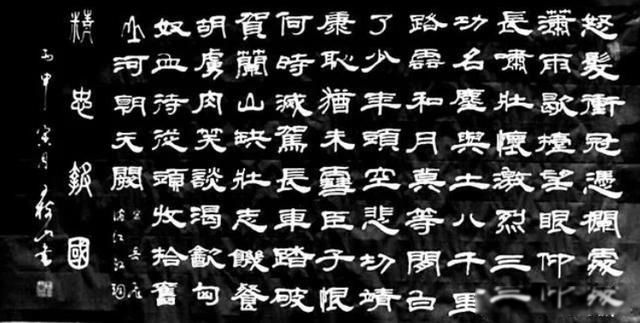 怒髮衝冠憑欄處瀟
瀟雨歇擡望眼仰天
長嘯壯懷激烈三十
功名塵與土八千里
路雲和月莫等閒白
了少年頭空悲切靖
康恥猶未雪臣子恨
何時滅駕長車踏破
賀蘭山缺壯志饑餐
胡虜肉笑談渴飲匈
奴血待從頭收拾舊
山河朝天闕
岳飛
滿江紅詞
精忠報國
丙申寅月